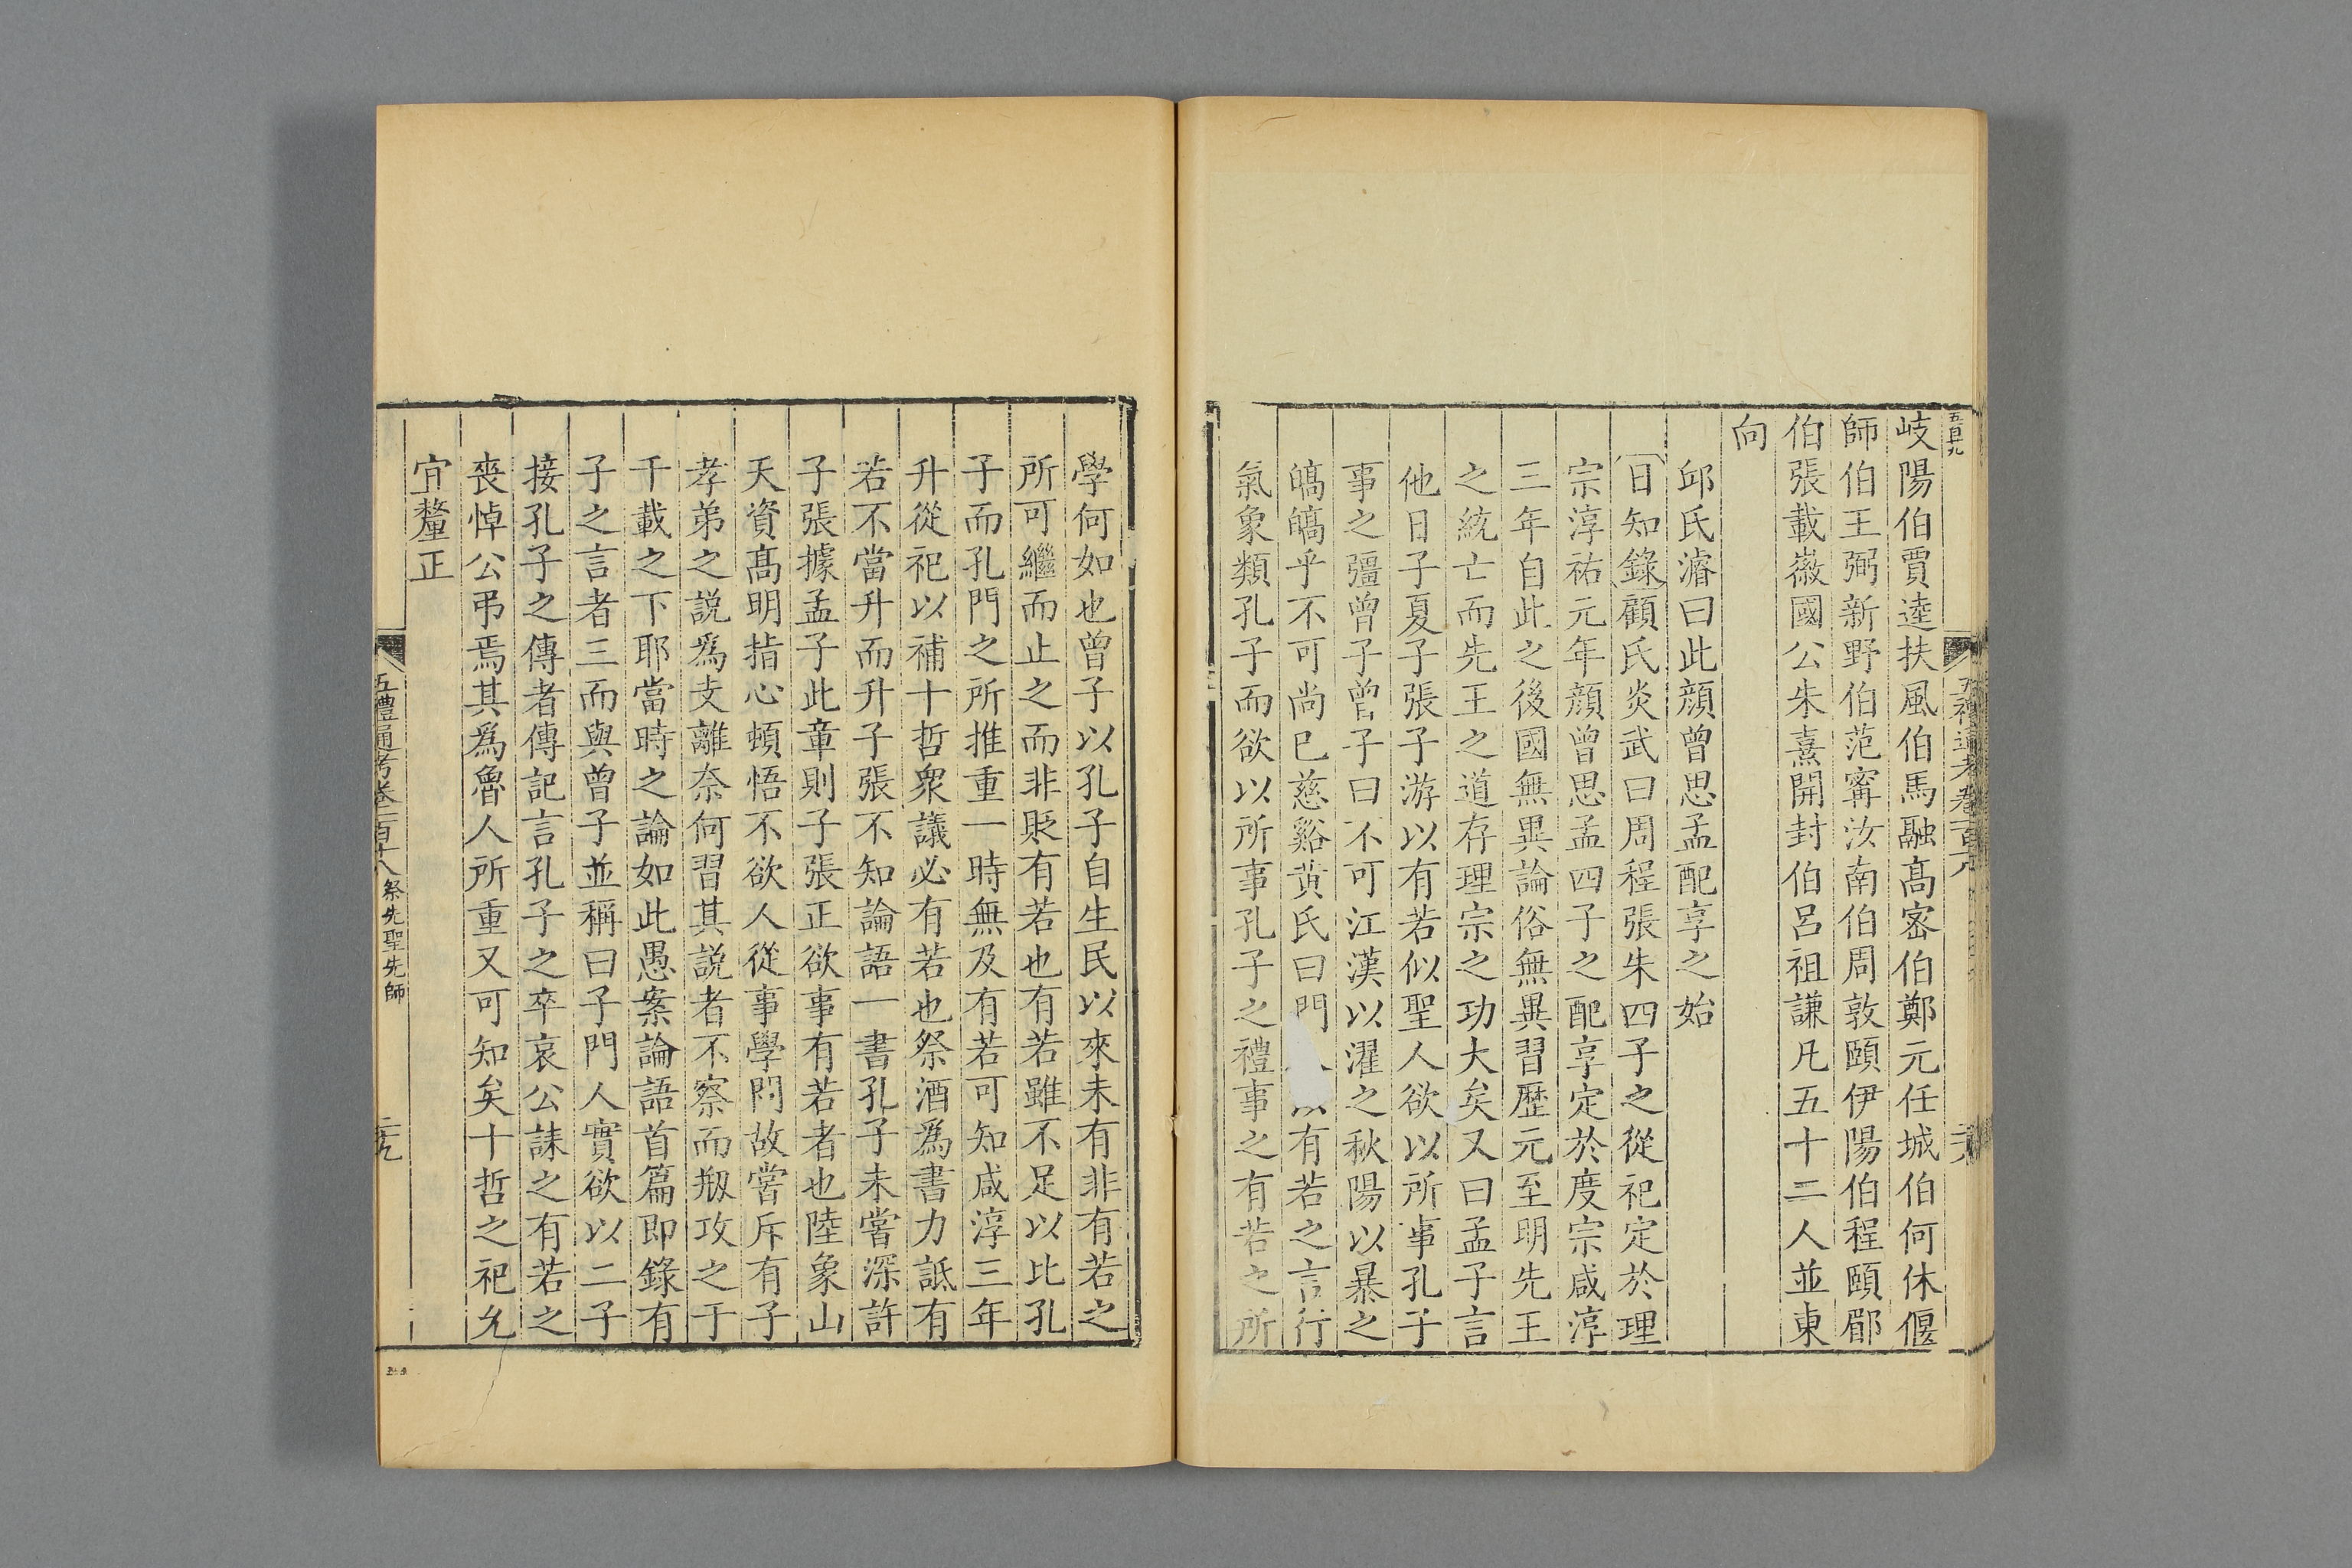 五百九
岐陽伯賈逵扶風伯馬融高密伯鄭元任城伯何休偃
師伯王弼新野伯范寗汝南伯周敦頤伊陽伯程頤郿
伯張載徽國公朱熹開封伯呂祖謙凡五十二人並東
向
邱氏濬曰此顔曾思孟配享之始
日知錄顧氏炎武曰周程張朱四子之從祀定於理
宗淳祐元年顔曾思孟四子之配享定於度宗咸淳
三年自此之後國無異論俗無異習歷元至明先王
之統亡而先王之道存理宗之功大矣又曰孟子言
他日子夏子張子游以有若似聖人欲以所事孔子
事之彊曾子曾子曰不可江漢以濯之秋陽以暴之
皜皜乎不可尚已慈谿黄氏曰門有若之言行
氣象類孔子而欲以所事孔子之禮事之有若之所
學何如也曾子以孔子自生民以來未有非有若之
所可繼而止之而非貶有若也有若雖不足以比孔
子而孔門之所推重一時無及有若可知咸淳三年
升從祀以補十哲衆議必有若也祭酒爲書力詆有
若不當升而升子張不知論語一書孔子未嘗深許
子張據孟子此章則子張正欲事有若者也陸象山
天資髙明指心頓悟不欲人從事學問故嘗斥有子
孝弟之説爲支離奈何習其説者不察而剏攻之于
千載之下耶當時之論如此愚案論語首篇即錄有
子之言者三而與曾子並稱曰子門人實欲以二子
接孔子之傳者傳記言孔子之卒哀公誄之有若之
喪悼公弔焉其爲魯人所重又可知矣十哲之祀允
宜釐正
五禮通考卷一百十八 祭先聖先師